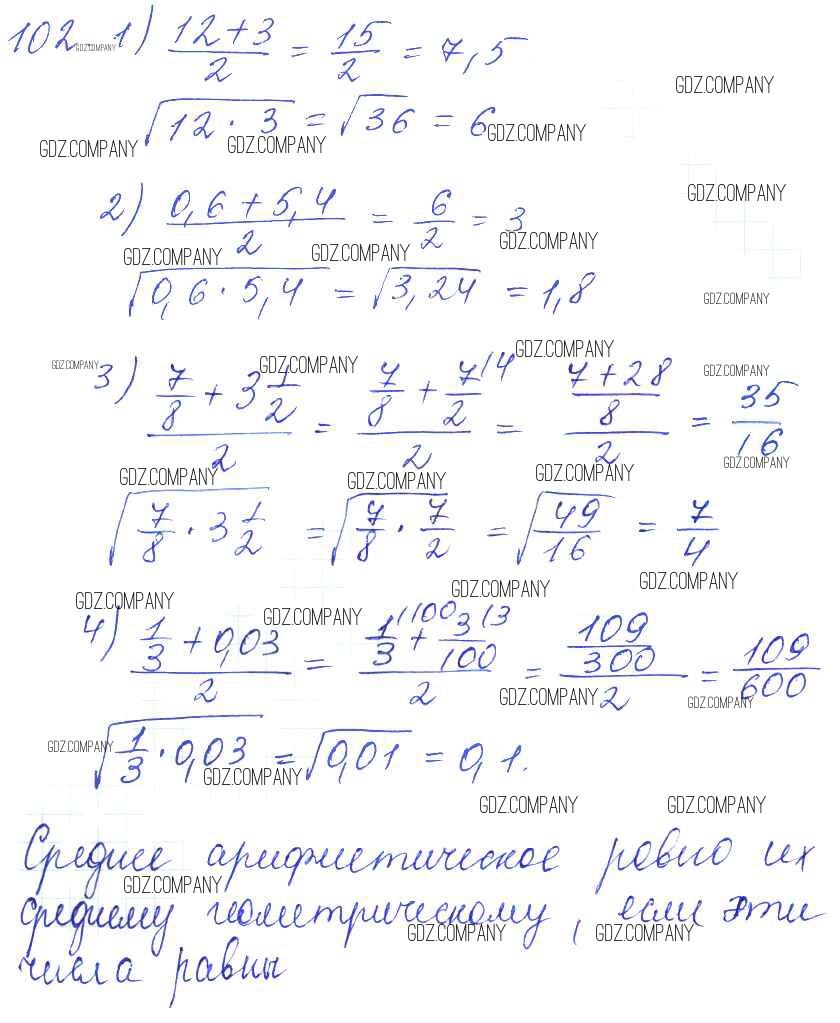 102 1) (12+3)/2 = 15/2 = 7,5
√(12·3) = √36 = 6
2) (0,6+5,4)/2 = 6/2 = 3
√(0,6·5,4) = √3,24 = 1,8
3) (7/8 + 3 1/2)/2 = (7/8 + 7/2 \4)/2 = ((7+28)/8)/2 = 35/16
√(7/8 · 3 1/2) = √(7/8 · 7/2) = √(49/16) = 7/4
4) (1/3 + 0,03)/2 = (1/3 \100 + 3/100 \3)/2 = (109/300)/2 = 109/600
√(1/3 · 0,03) = √0,01 = 0,1.
Среднее арифметическое равно их
среднему геометрическому, если эти
числа равны
GDZ.COMPANY